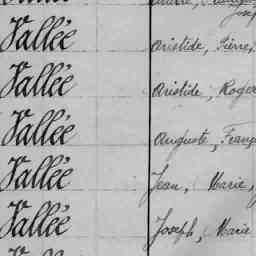 Vallée Aristide, Pierre,
Vallée Aristide, Roger
Vallée Auguste, Franç
Vallée Jean, Marie,
Vallée Joseph, Marie